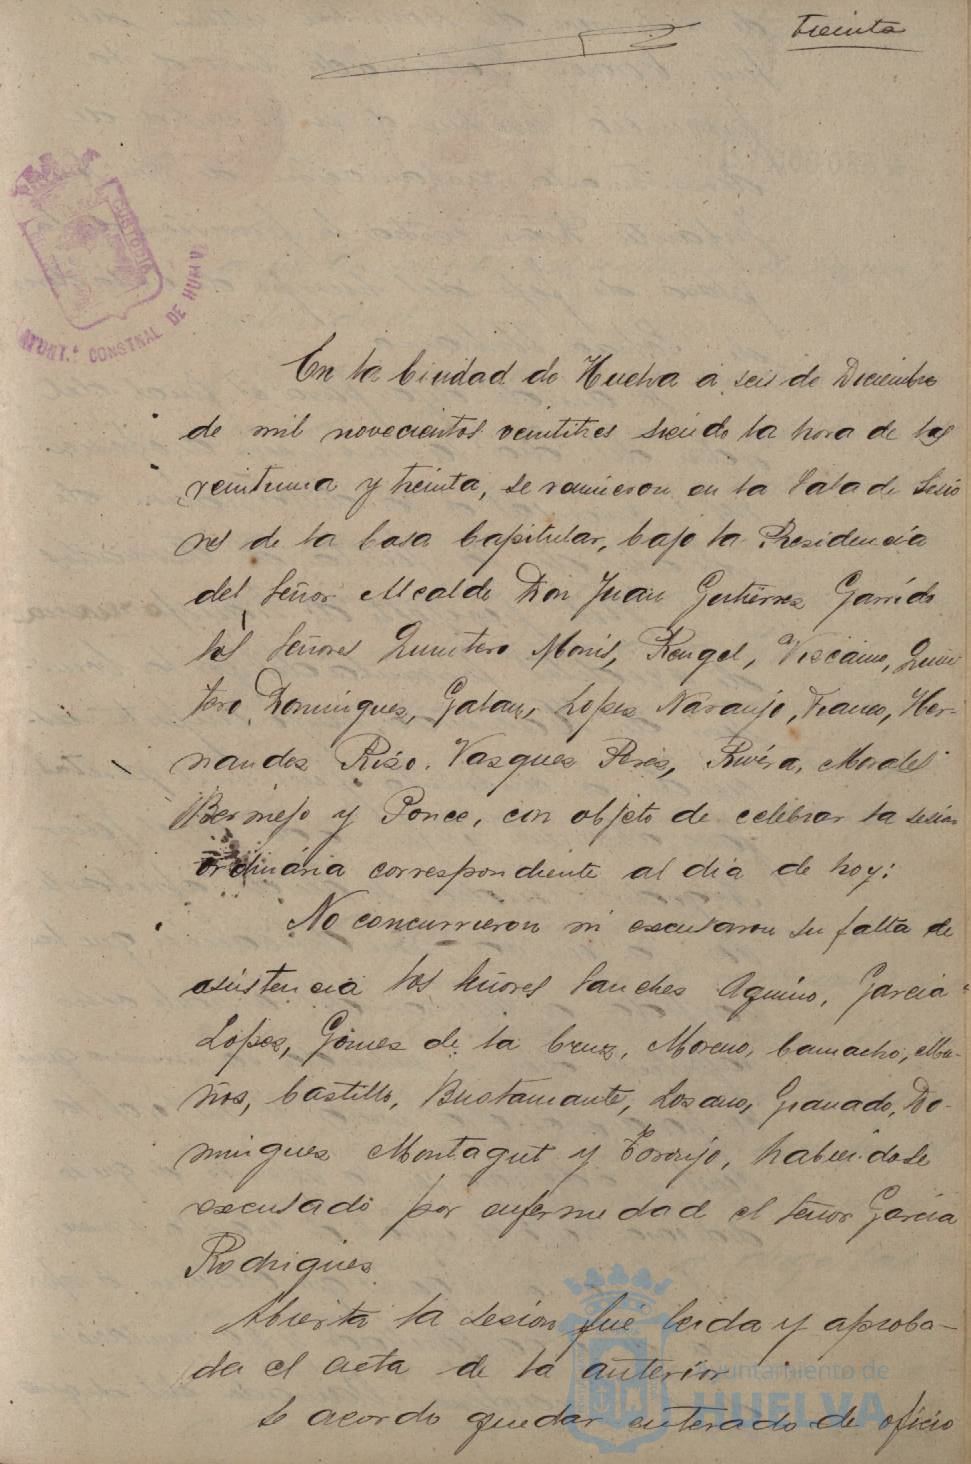 Treinta
AYUNT.º CONSTNAL DE HUELV
En la Ciudad de Huelva a seis de Diciembre
de mil novecientos veintitres siendo la hora de las
veintiuna y treinta, se reunieron en la Sala de Sesio
nes de la Casa Capitular, bajo la Presidencia
del Señor Alcalde Don Juan Gutierrez Garrido
los Señores Quintero Monis, Rengel, Viscaino, Quin
tero Dominguez, Galan, Lopez Naranjo, Franco, Her-
nandez Rizo, Vazquez Perez, Rivera, Morales
Bermejo y Ponce, con objeto de celebrar la sesion
ordinaria correspondiente al dia de hoy:
No concurrieron ni excusaron su falta de
asistencia los señores Sanchez Aquino, Garcia
Lopez, Gomez de la Cruz, Moreno, Camacho, Mu-
ños, Castillo, Bustamante, Lozano, Granado, Do-
minguez Montagut y Toronjo, habiendose
excusado por enfermedad el señor Garcia
Rodriguez
Abierta la sesion fue leida y aproba-
da el acta de la anterior
Se acordo quedar enterado de oficio
Ayuntamiento de
HUELVA